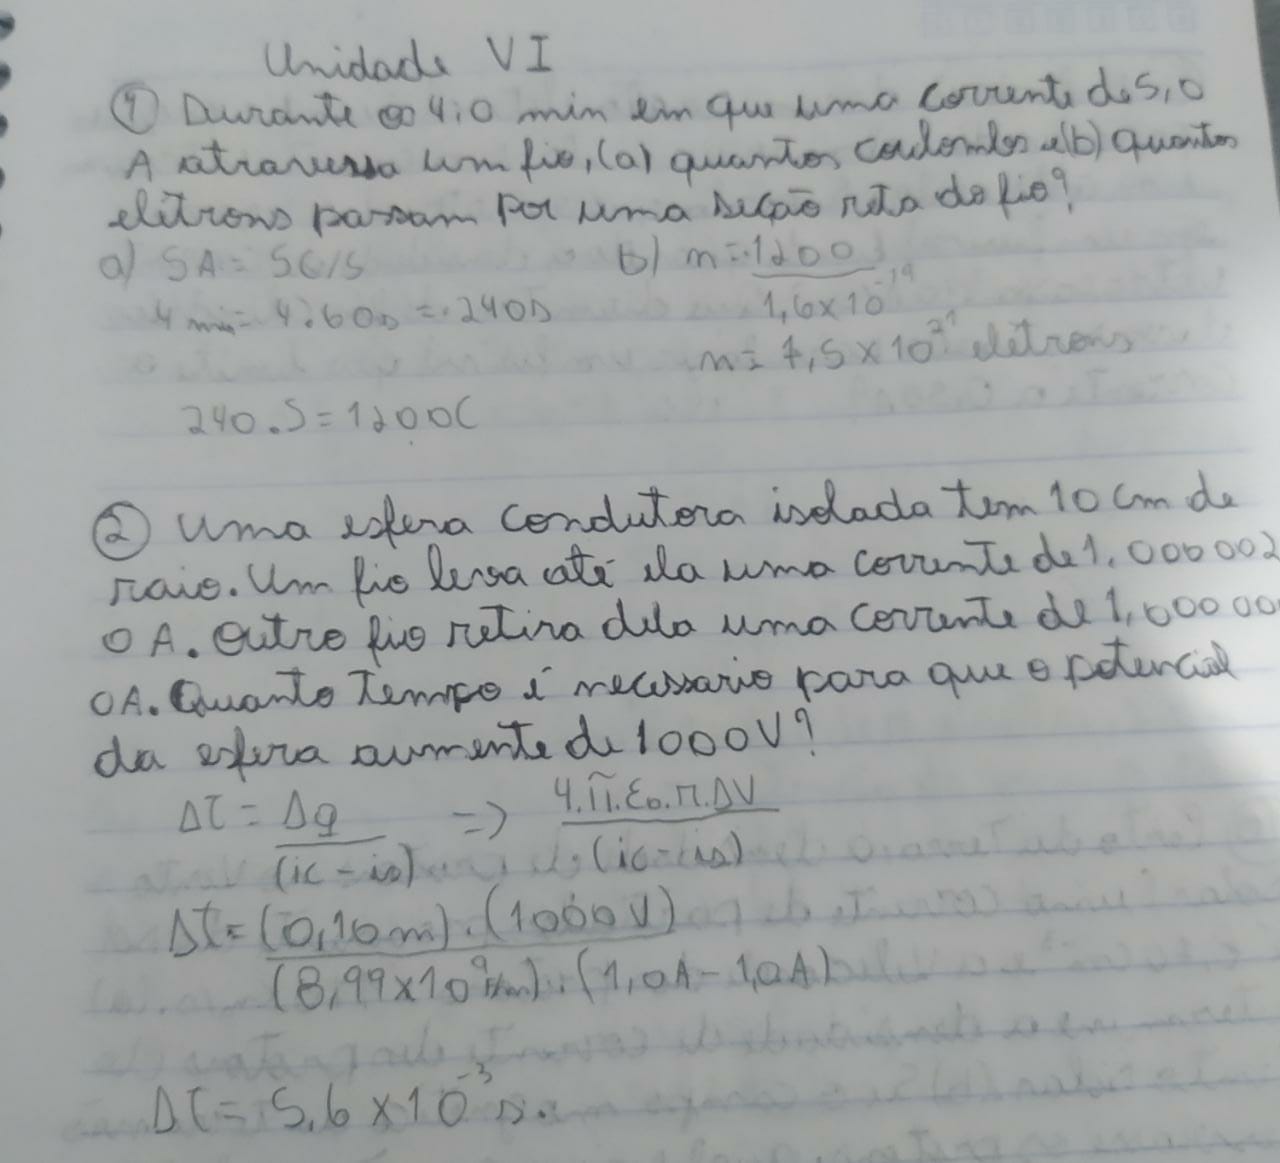 Unidade VI
① Durante os 4,0 min em que uma corrente de 5,0
A atravessa um fio, (a) quantos coulombs e (b) quantos
elétrons passam por uma seção reta do fio?
a) 5A = 5C/s b) n = 1200
4 min = 4.60s = 240s 1,6x10^-19
n = 7,5 x 10^21 elétrons
240.5 = 1200C
② Uma esfera condutora isolada tem 10 cm de
raio. Um fio leva até ela uma corrente de 1,000 002
0 A. Outro fio retira dela uma corrente de 1,000 00
0A. Quanto tempo é necessario para que o potencial
da esfera aumente de 1000V?
Δt = Δq => 4.π.ε₀.r.ΔV
(ic - is) (ic - is)
Δt = (0,10 m).(1000 V)
(8,99x10^9 F/m).(1,0A - 1,0A)
Δt = 5,6 x 10^-3 s.